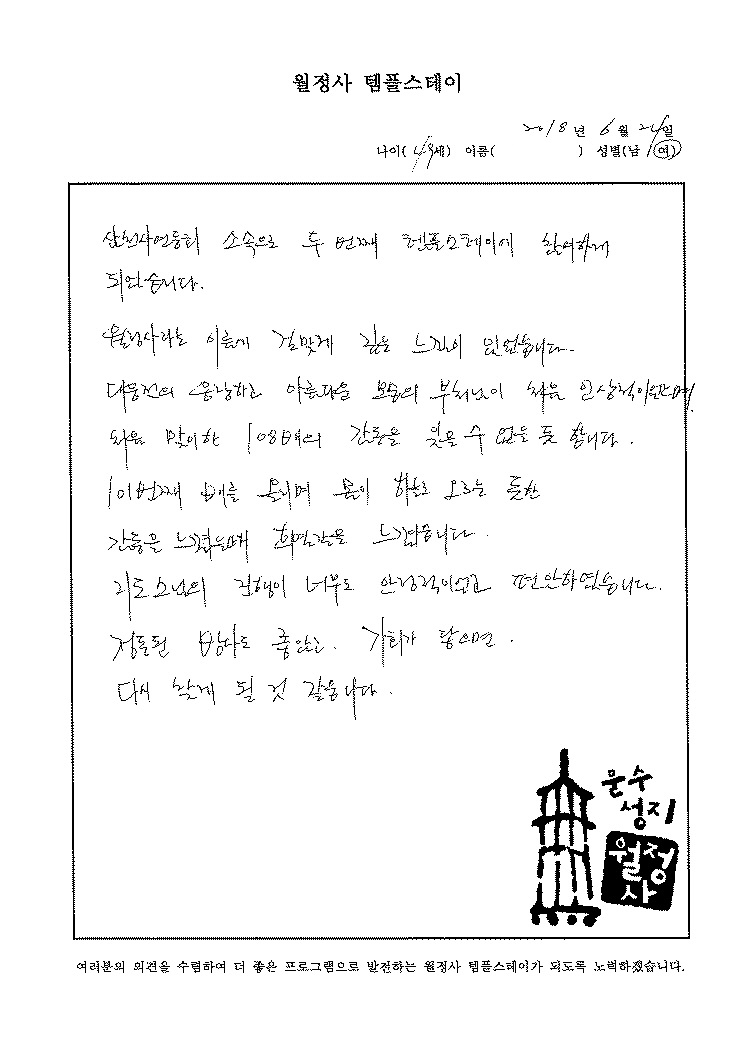 월정사 템플스테이
2018년 6월 24일
나이( 49세) 이름( ) 성별(남 / 여)
소속으로 두 번째 템플스테이에 참여하게
되었습니다.
월정사라는 이름에 걸맞게 깊은 느낌이 있었습니다.
대웅전의 웅장하고 아름다운 모습의 부처님이 처음 인상적이었으며,
처음 맞이한 108배의 감동을 잊을 수 없을 듯 합니다.
101번째 배를 올리며 몸이 하늘로 오르는 듯한
감동을 느꼈는데 희열감을 느꼈습니다.
지도스님의 진행이 너무도 안정적이었고 편안하였습니다.
정돈된 방사도 좋았고. 기회가 닿으면.
다시 찾게 될 것 같습니다.
문수
성지
월정
사
여러분의 의견을 수렴하여 더 좋은 프로그램으로 발전하는 월정사 템플스테이가 되도록 노력하겠습니다.